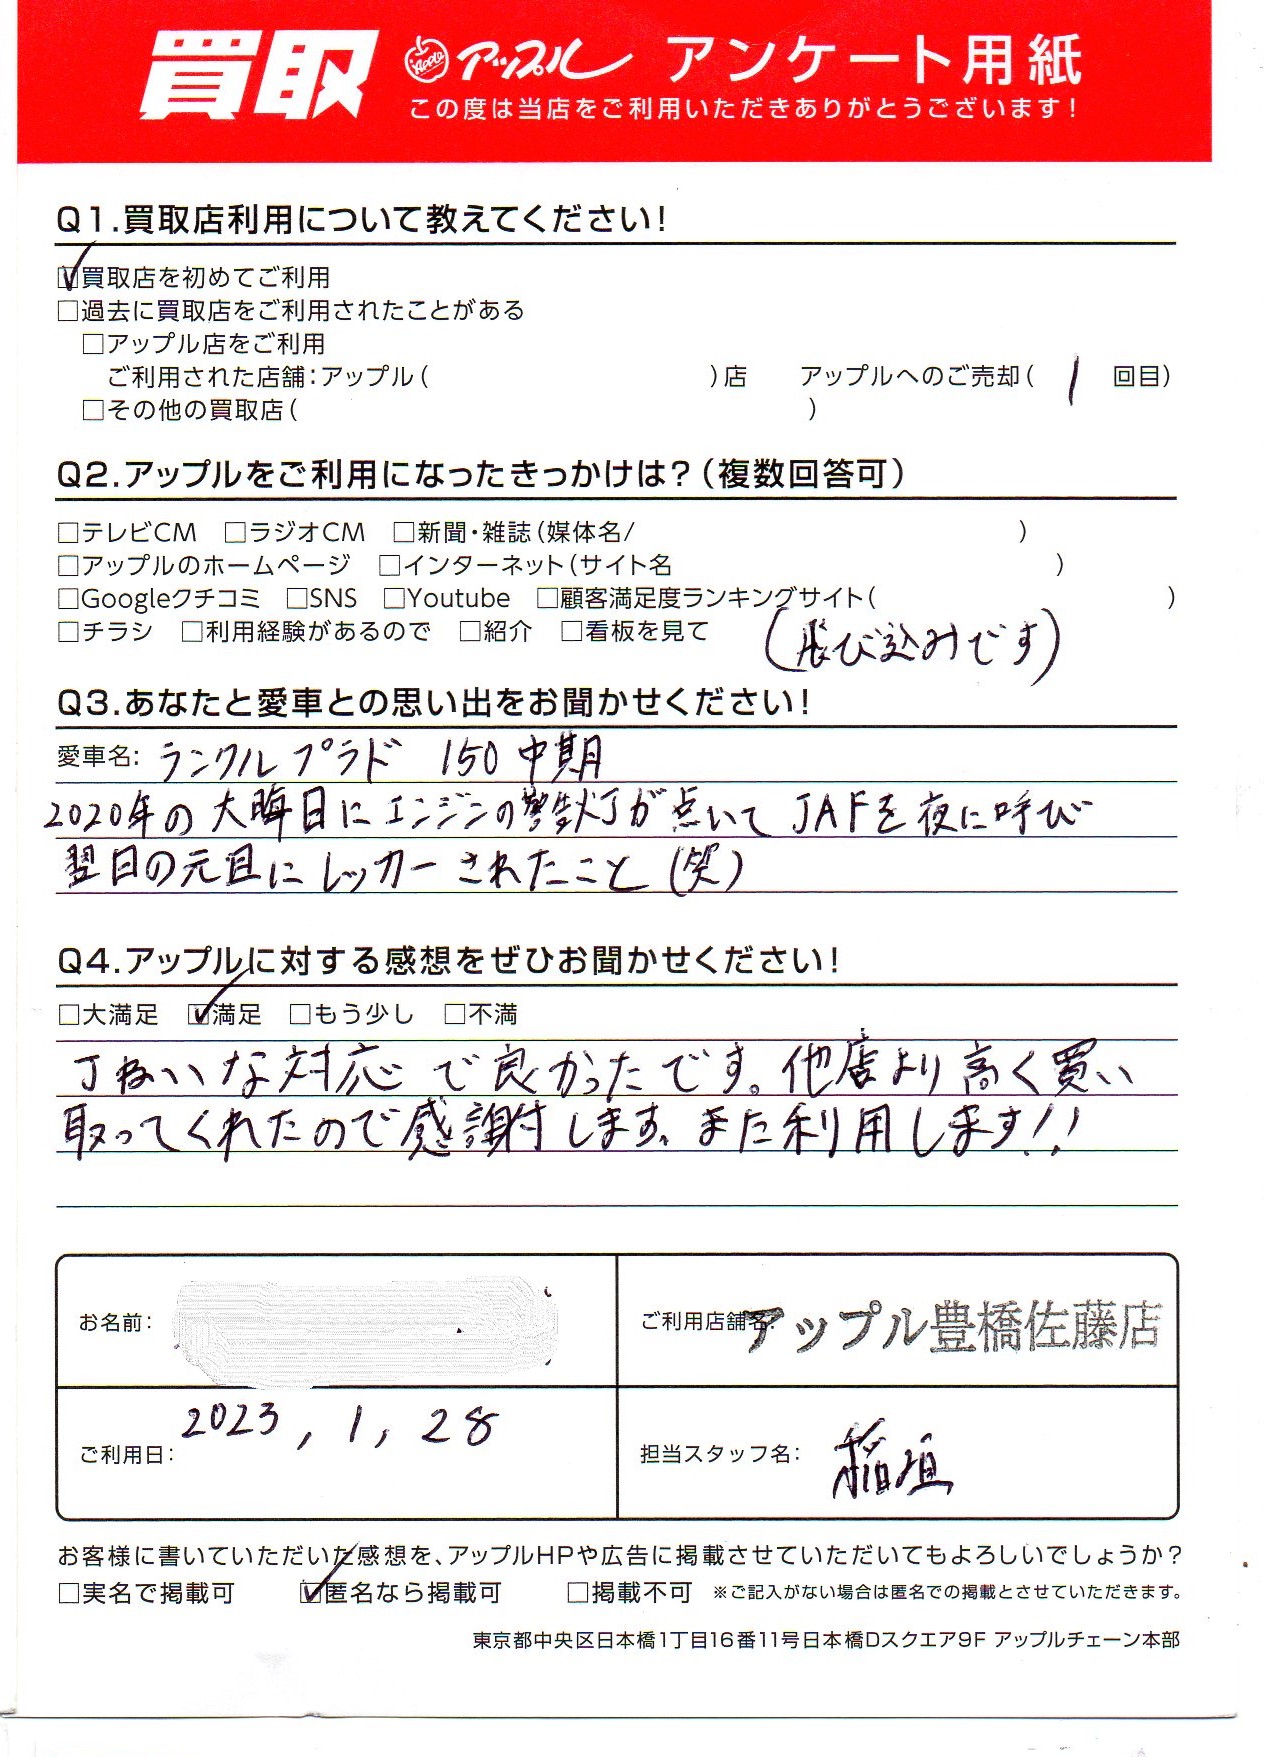 買取 Apple アップル アンケート用紙
この度は当店をご利用いただきありがとうございます!
Q1.買取店利用について教えてください!
☑買取店を初めてご利用
□過去に買取店をご利用されたことがある
□アップル店をご利用
ご利用された店舗:アップル( )店 アップルへのご売却( 1 回目)
□その他の買取店( )
Q2.アップルをご利用になったきっかけは?(複数回答可)
□テレビCM □ラジオCM □新聞・雑誌(媒体名/ )
□アップルのホームページ □インターネット(サイト名 )
□Googleクチコミ □SNS □Youtube □顧客満足度ランキングサイト( )
□チラシ □利用経験があるので □紹介 □看板を見て (飛び込みです)
Q3.あなたと愛車との思い出をお聞かせください!
愛車名: ランクルプラド 150中期
2020年の大晦日にエンジンの警告灯が点いてJAFを夜に呼び
翌日の元旦にレッカーされたこと(笑)
Q4.アップルに対する感想をぜひお聞かせください!
□大満足 ☑満足 □もう少し □不満
丁ねいな対応で良かったです。他店より高く買い
取ってくれたので感謝します。また利用します!!
お名前:
ご利用店舗名: アップル豊橋佐藤店
ご利用日: 2023, 1, 28
担当スタッフ名: 稲垣
お客様に書いていただいた感想を、アップルHPや広告に掲載させていただいてもよろしいでしょうか?
□実名で掲載可 ☑匿名なら掲載可 □掲載不可 ※ご記入がない場合は匿名での掲載とさせていただきます。
東京都中央区日本橋1丁目16番11号日本橋Dスクエア9F アップルチェーン本部